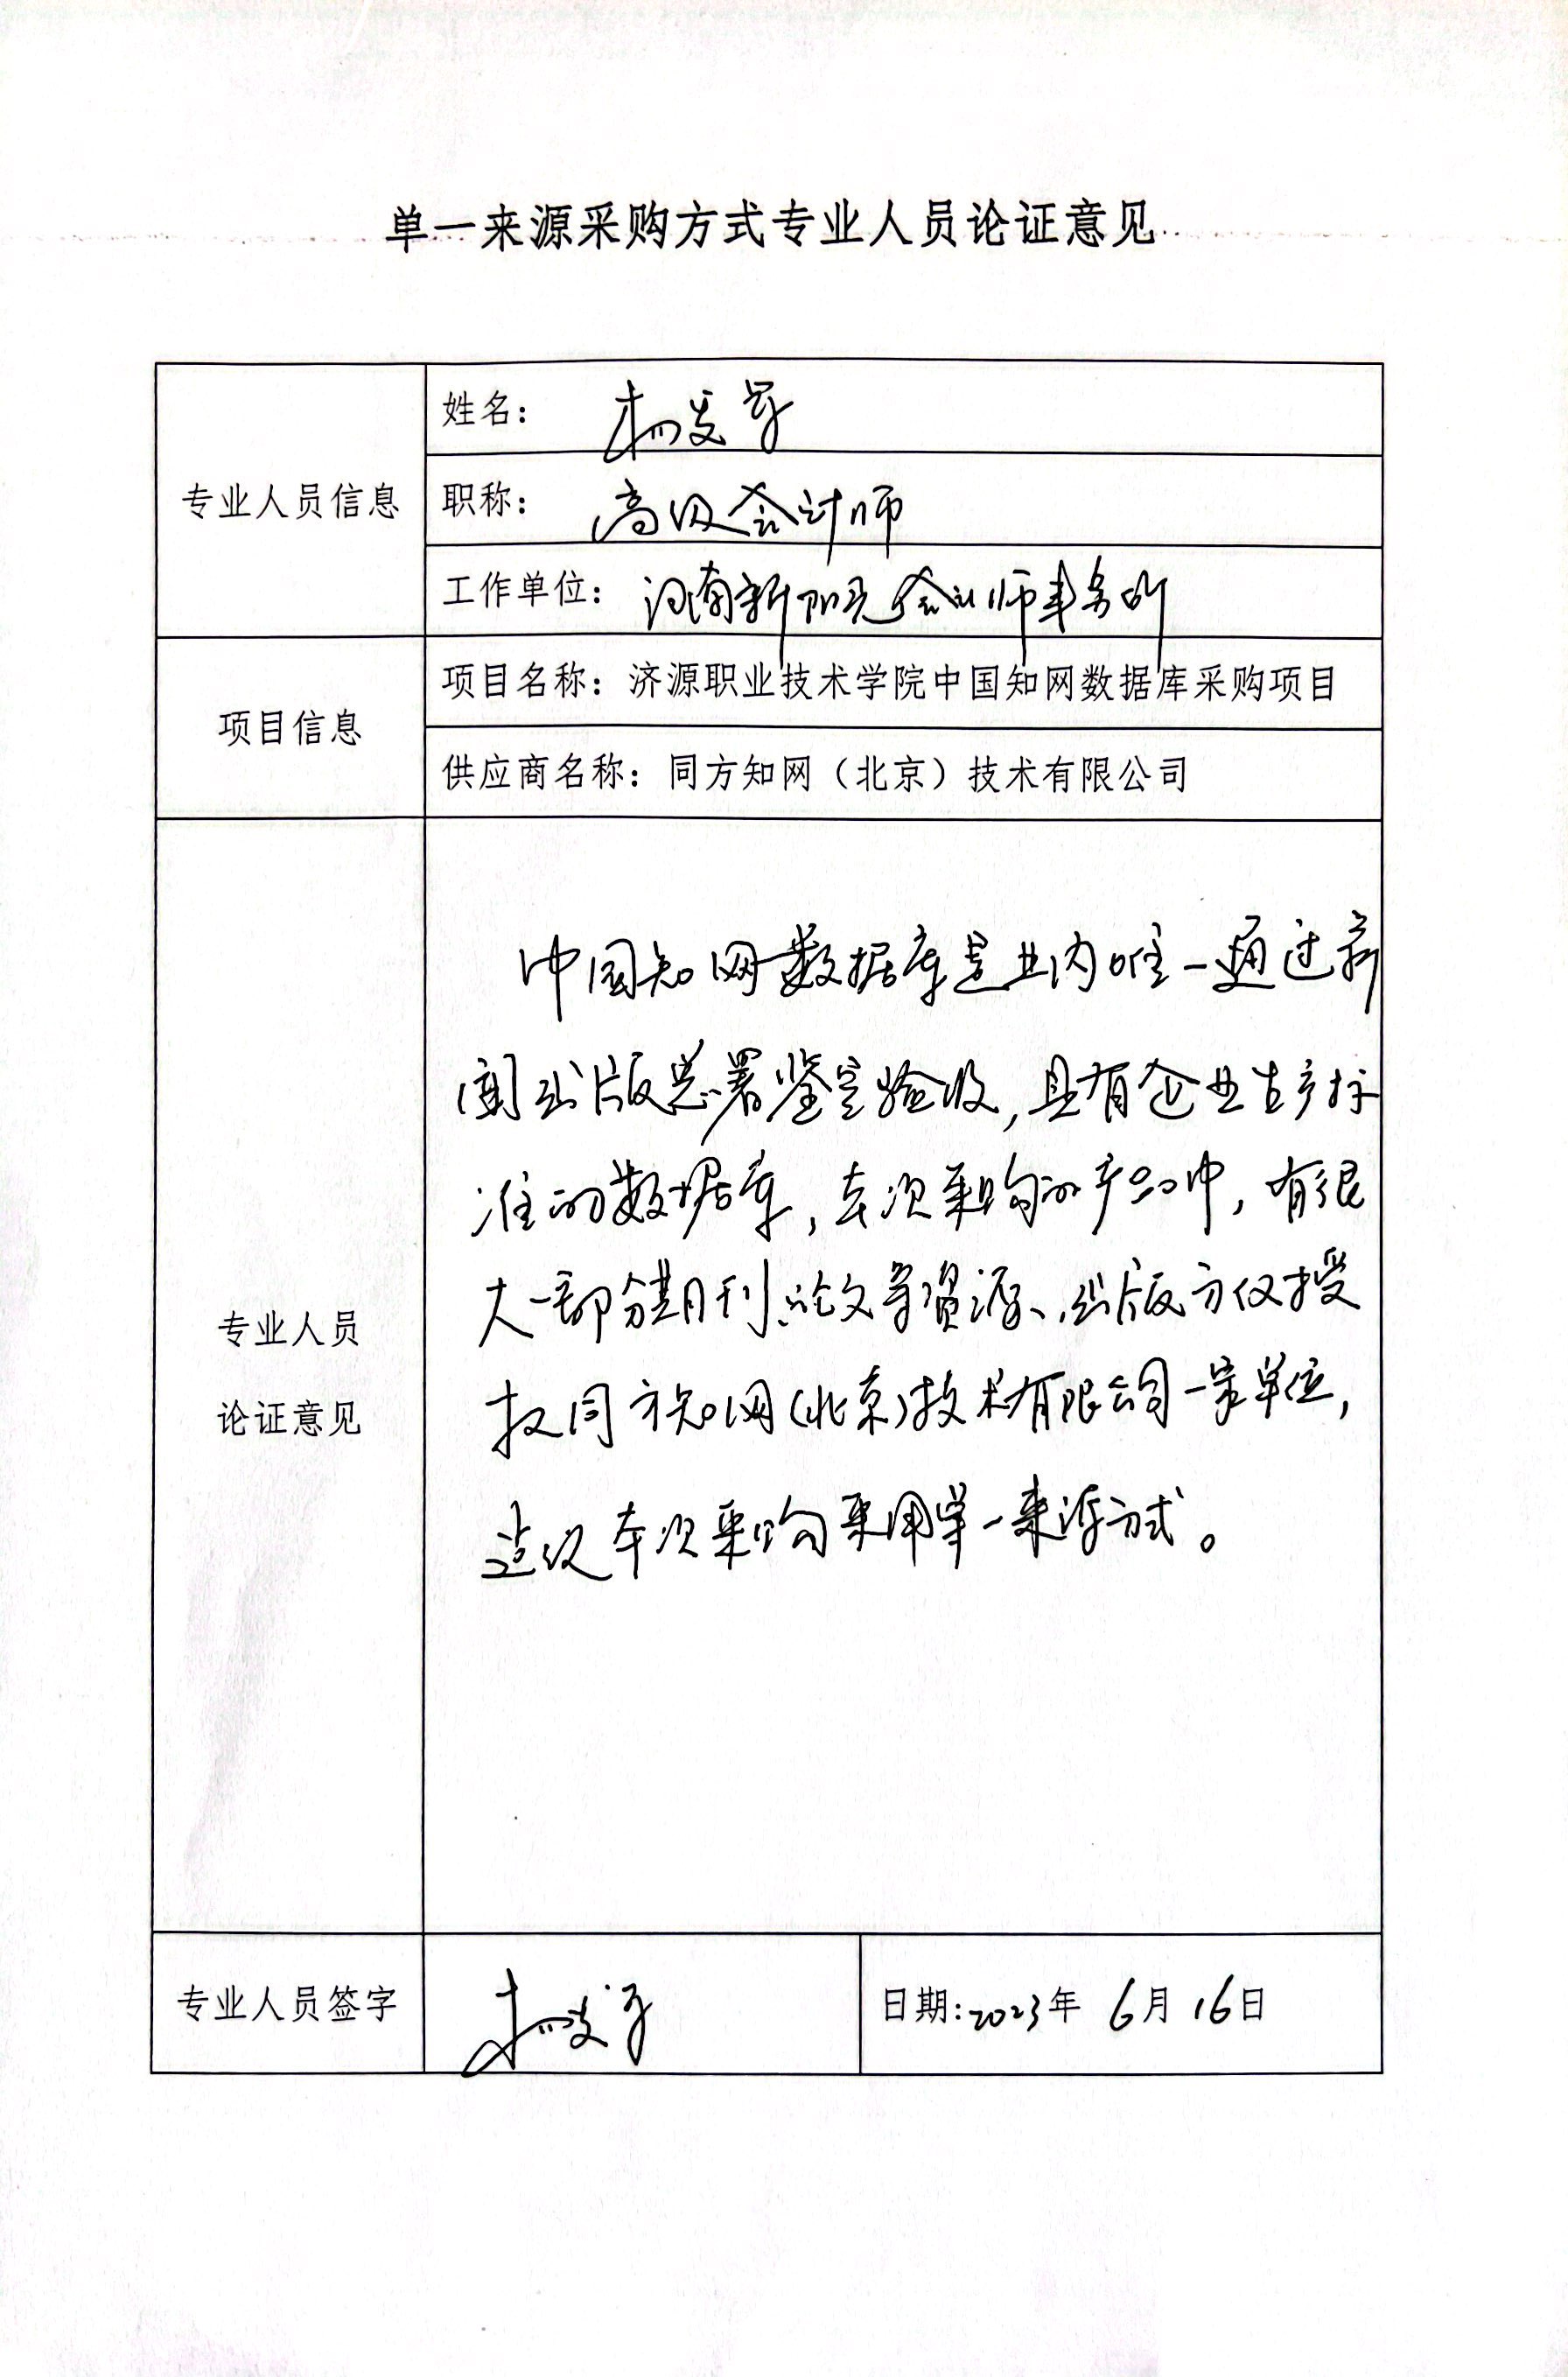 单一来源采购方式专业人员论证意见
专业人员信息
姓名：
职称：高级会计师
工作单位：河南新阳光会计师事务所
项目信息
项目名称：济源职业技术学院中国知网数据库采购项目
供应商名称：同方知网（北京）技术有限公司
专业人员
论证意见
中国知网数据库是业内唯一通过新
闻出版总署鉴定验收，具有企业生产标
准的数据库，本次采购的产品中，有很
大一部分期刊、论文等资源、出版方仅授
权同方知网(北京)技术有限公司一家单位，
建议本次采购采用单一来源方式。
专业人员签字
日期:2023年6月16日